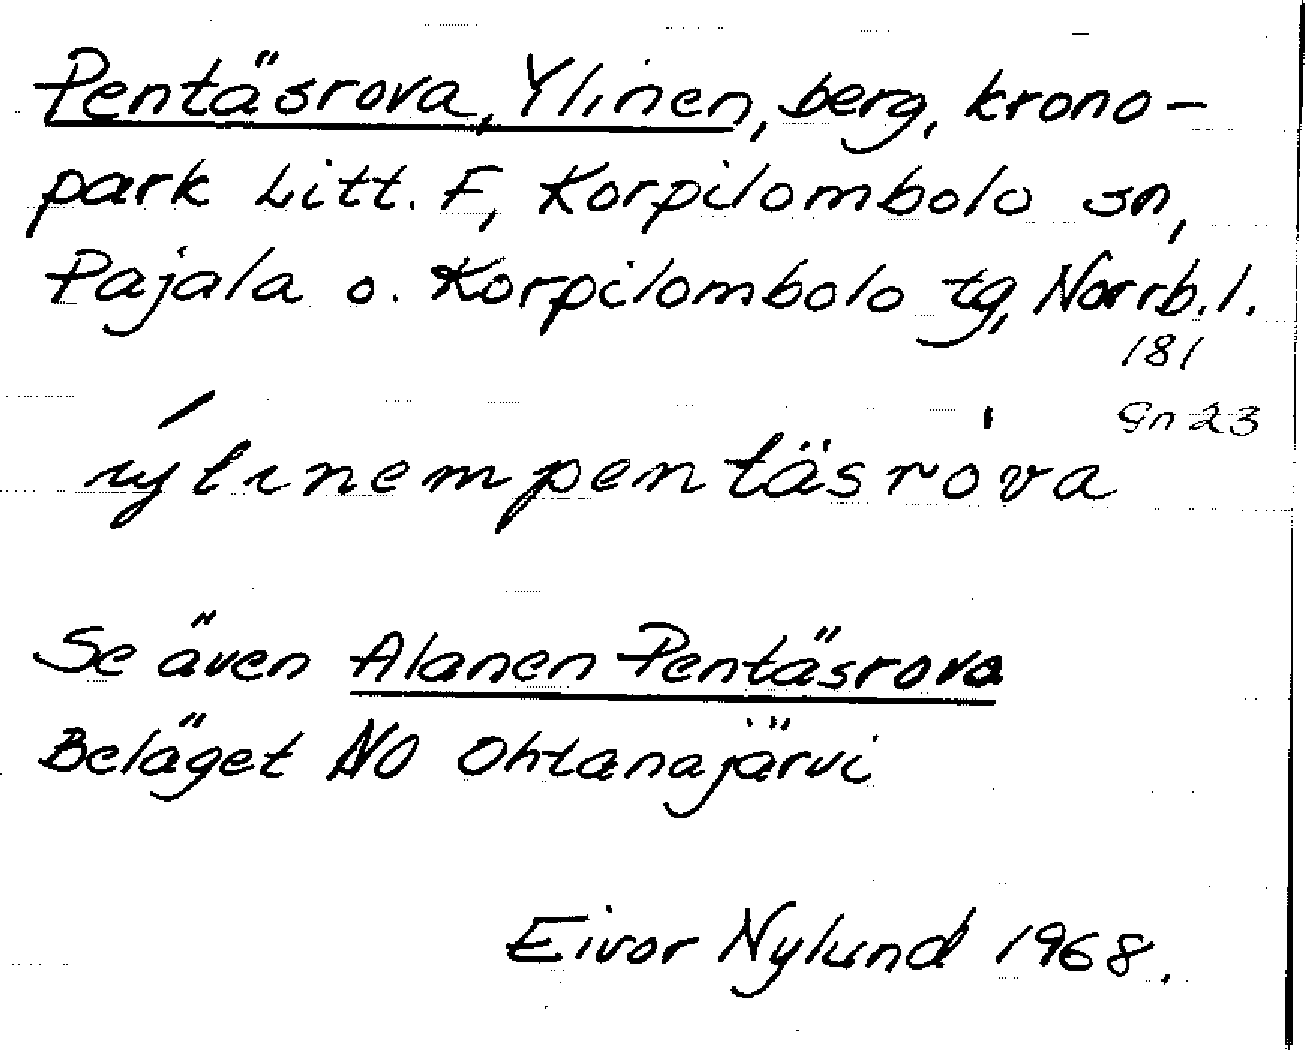 Pentäsrova, Ylinen, berg, krono-
park Litt. F, Korpilombolo sn,
Pajala o. Korpilombolo tg, Norrb.l.
181
Gn 23
ýlinempentäsròva
Se även Alanen Pentäsrova
Beläget NO Ohtanajärvi
Eivor Nylund 1968.